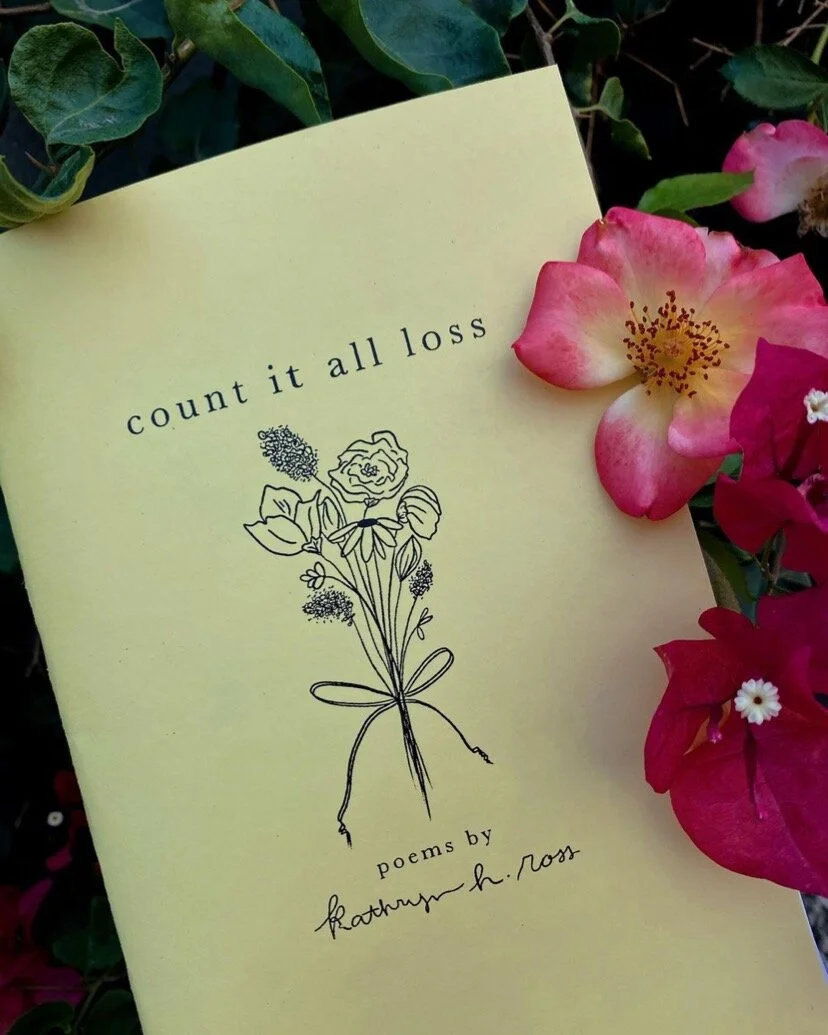 count it all loss
poems by
kathryn h. ross